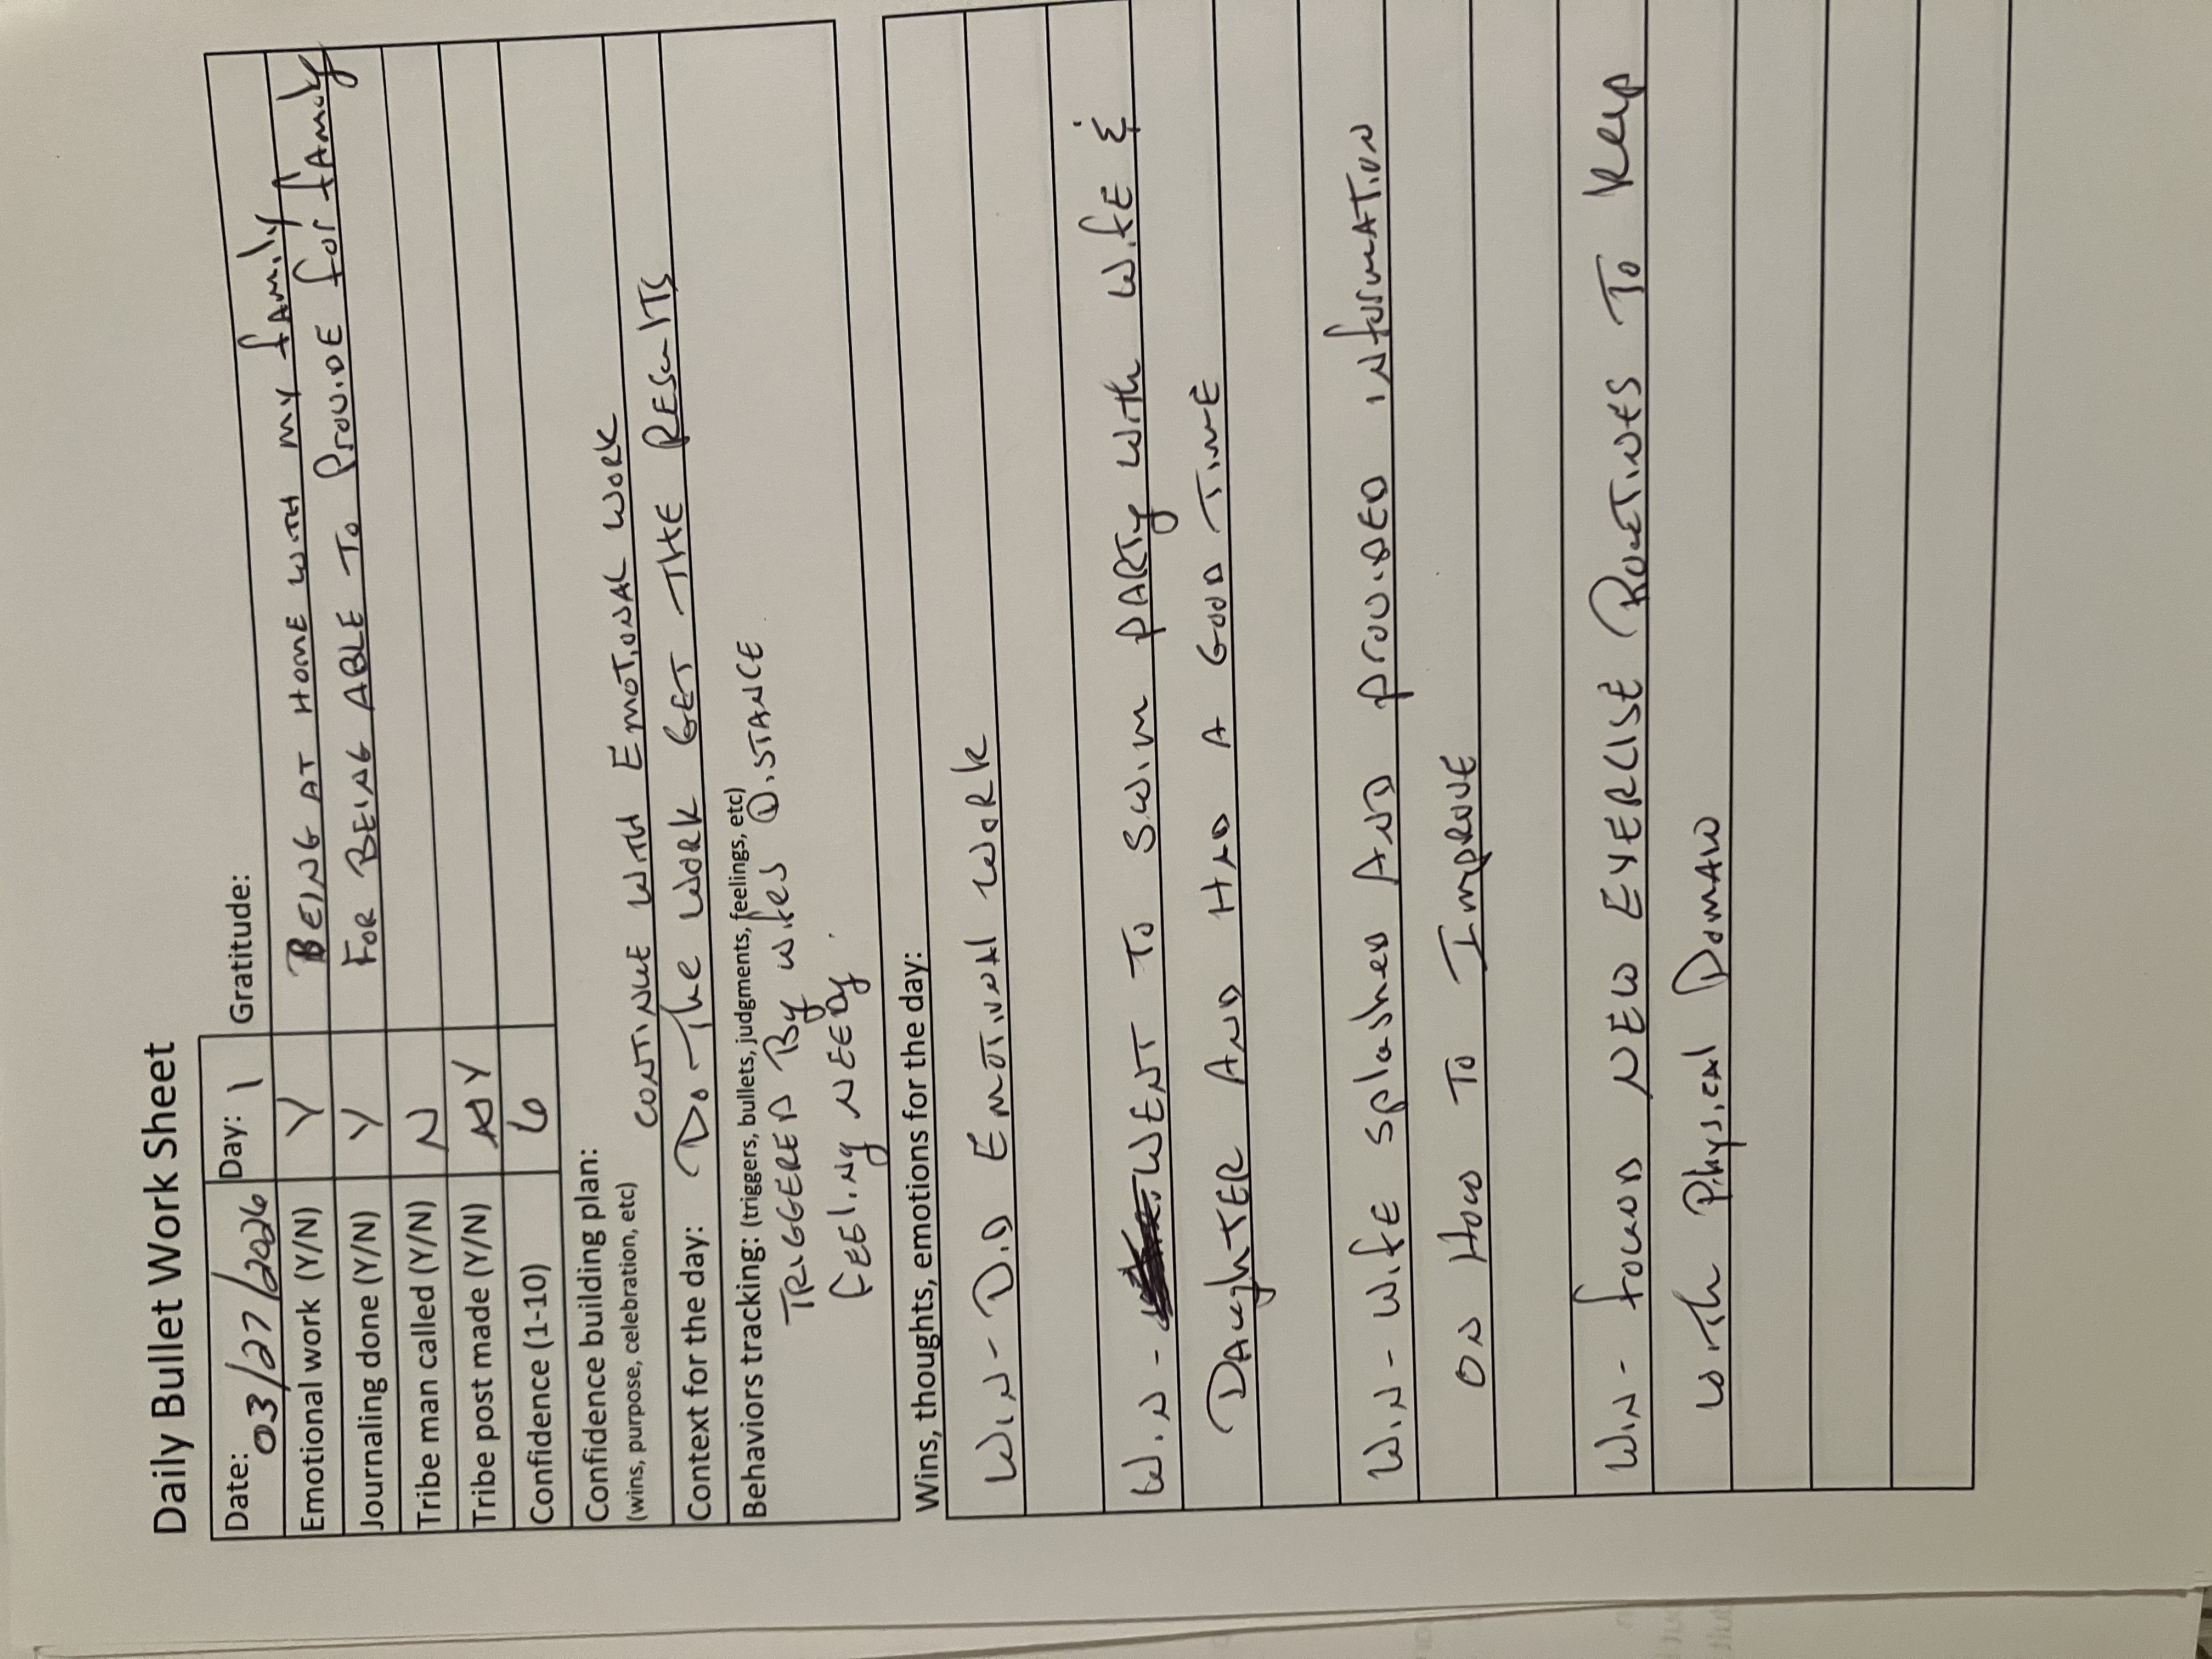 Daily Bullet Work Sheet
Date: 03/27/2026 Day: 1 Gratitude:
Emotional work (Y/N) Y BEING AT HOME WITH MY FAMILY
Journaling done (Y/N) Y FOR BEING ABLE TO PROVIDE for fAmily
Tribe man called (Y/N) N
Tribe post made (Y/N) Y
Confidence (1-10) 6
Confidence building plan:
(wins, purpose, celebration, etc) CONTINUE WITH EMOTIONAL WORK
Context for the day: Do The WORK GET THE RESulTS
Behaviors tracking: (triggers, bullets, judgments, feelings, etc)
TRIGGERED By wifes DISTANCE
FEEliNg NEEDy.
Wins, thoughts, emotions for the day:
WiN - DiD EmoTioNAl WORk
WiN - WENT TO Swim PARTy With WifE &
DAughTER AND HAD A GOOD TimE
WiN - WifE SplasheD AND ProviDED iNformATioN
ON How To ImpROVE
WiN - fouND NEW EXERCISE RouTiNES To KEEp
with Physical DomAiN